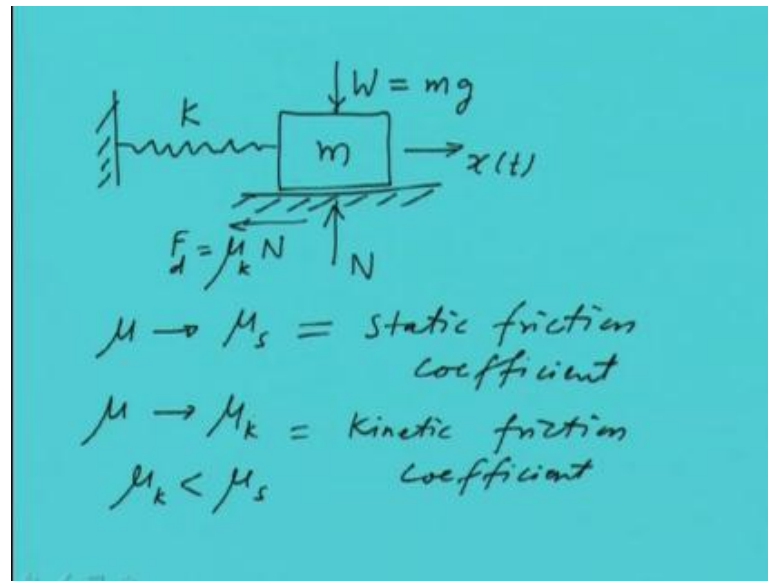 W = mg
K
m
x(t)
F_d = μ_k N
N
μ → μ_s = static friction
coefficient
μ → μ_k = kinetic friction
coefficient
μ_k < μ_s